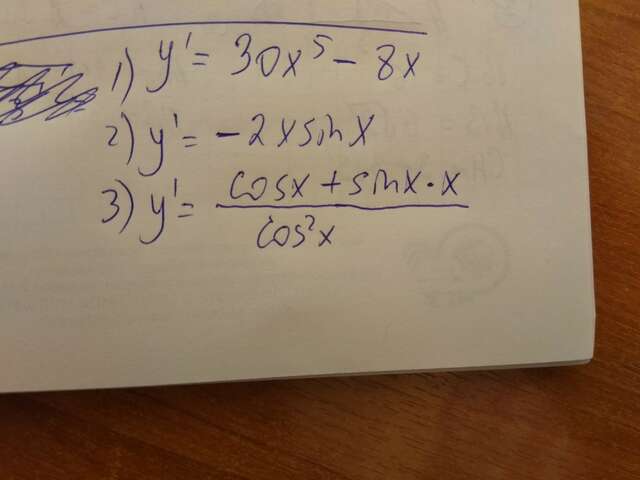 1) y' = 30x⁵ - 8x
2) y' = -2xsinx
3) y' = (cosx + sinx·x) / cos²x